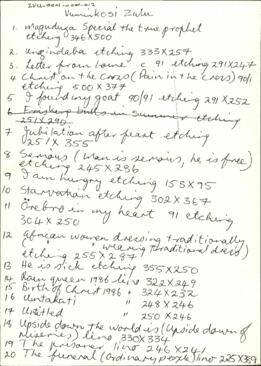 ZUL-0001-0001-012
Vuminkosi Zulu
1. Magudu Special the true prophet
etching 346 x 500
2. Unqindeba etching 333 x 257
3. Letter from home c 91 etching 291 x 247
4 Christ on the Cross (Pain in the Cross) 90/1
etching 500 x 377
5 I found my goat 90/91 etching 291 x 252
6 bulls in Summer etching
251 x 290
7 Jubilation after feast etching
251 x 355
8 Serious (Man is serious, he is free)
etching 245 x 286
9 I am hungry etching 153 x 95
10 Starvation etching 302 x 367
11 Örebro in my heart 91 etching
304 x 250
12 African women dressing traditionally
( " " wearing traditional dress)
etching 255 x 287
13 He is sick etching 355 x 250
14 Rain queen 1986 lino 322 x 249
15 Birth of Lord 1986 " 324 x 232
16 Umtakati " 248 x 246
17 Untitled " 250 x 246
18 Upside down the world is (Upside down of
miseries) lino 330 x 334
19 The prisoner lino 246 x 241
20 The funeral (ordinary people) lino 225 x 389